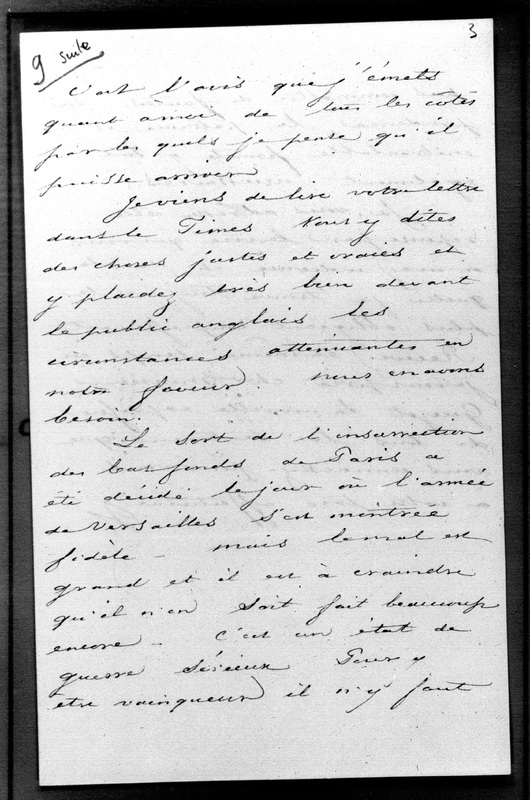 9 suite
3
C'est l'avis que j'émets
quant à moi de tous les côtés
par les quels je pense qu'il
puisse arriver
Je viens de lire votre lettre
dans le Times Vous y dites
des choses justes et vraies et
y plaidez très bien devant
le public anglais les
circonstances attenuantes en
notre faveur. nous en avons
besoin.
Le sort de l'insurrection
des bas fonds de Paris a
été décidé le jour où l'armée
de Versailles s'est montrée
fidèle - mais le mal est
grand et il est à craindre
qu'il n'en soit fait beaucoup
encore - c'est un état de
guerre sérieux Pour y
être vainqueur il n'y faut